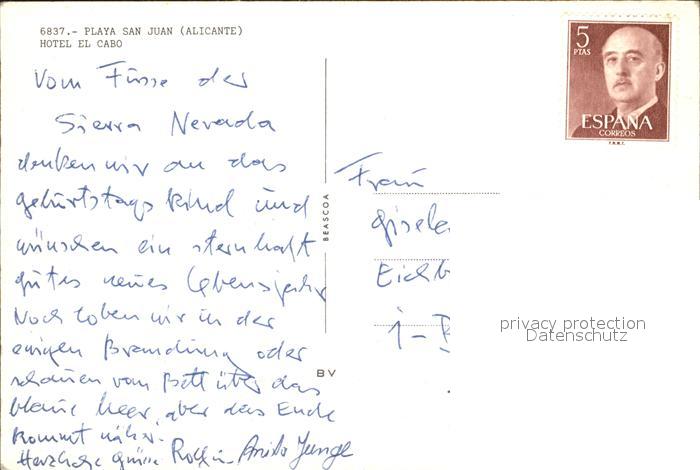 6837.- PLAYA SAN JUAN (ALICANTE)
HOTEL EL CABO
Vom Fusse der
Sierra Nevada
denken wir an das
geburtstagskind und
wünschen ein sternhaft
gutes neues Lebensjahr
Noch toben wir in der
ewigen Brandung oder
schauen vom Bett über das
blaue Meer, aber das Ende
kommt näher.
Herzliche grüsse Anita Junge
BEASCOA
BV
5
PTAS
ESPAÑA
CORREOS
F.N.M.T.
Frau
gisela
Eich
privacy protection
Datenschutz